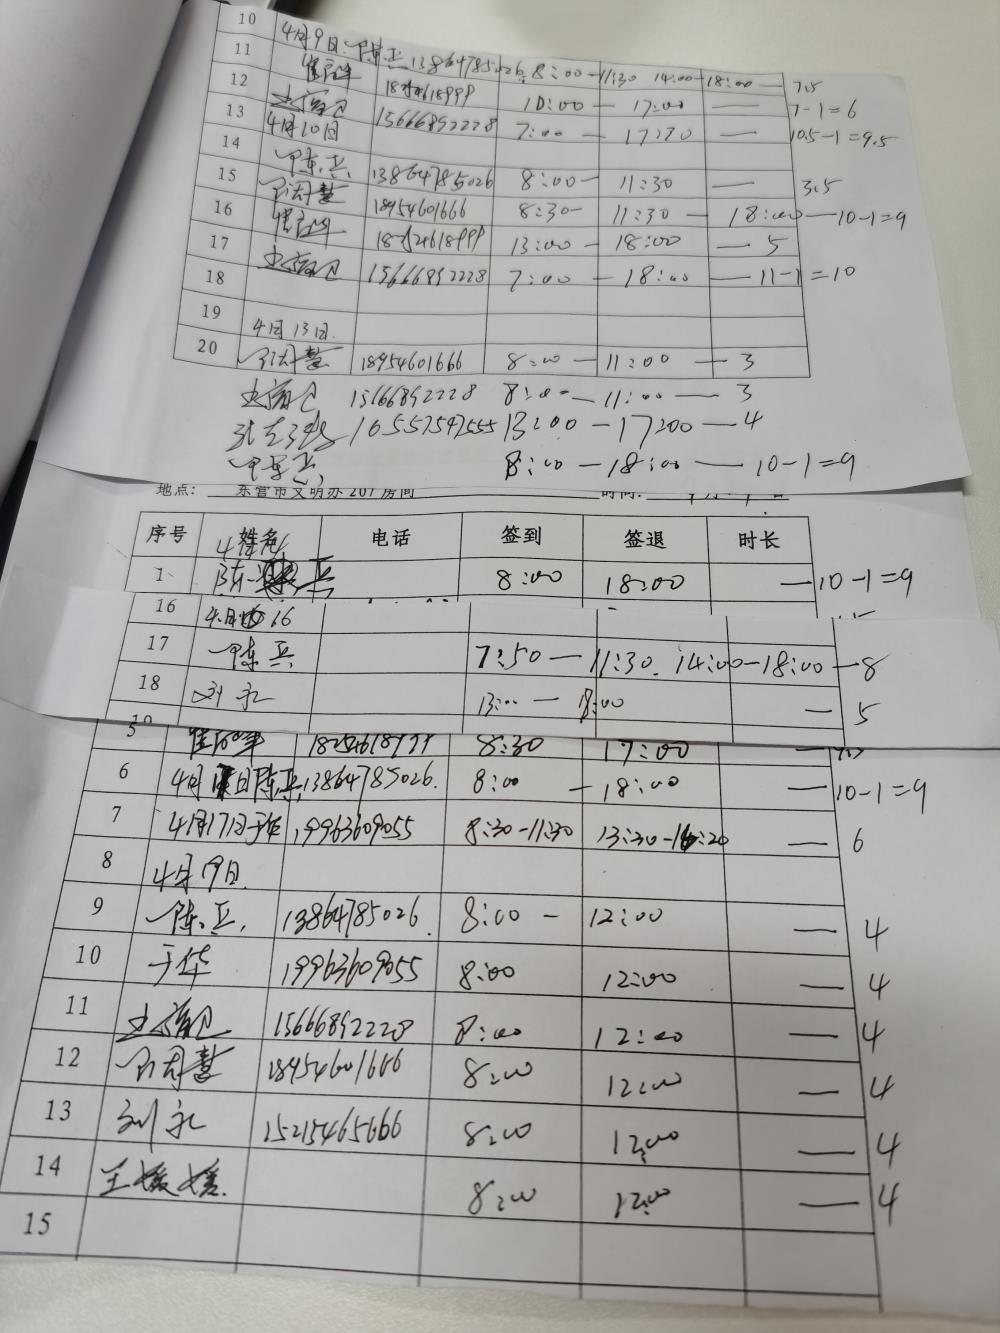 10 4月9日 陈兵 13864785026 8:00-11:30 14:00-18:00 — 7.5
11 18254618999 10:00 — 17:00 — 7-1=6
12 15666892228 7:00 — 17:30 — 10.5-1=9.5
13 4月10日
14 陈兵 13864785026 8:00 — 11:30 — 3.5
15 18954601666 8:30- 11:30 - 18:00 — 10-1=9
16 18254618999 13:00 - 18:00 — 5
17 15666892228 7:00 - 18:00 — 11-1=10
18
19 4月13日.
20 18954601666 8:00 — 11:00 — 3
15666892228 8:00 — 11:00 — 3
16557547555 13:00 — 17:00 — 4
陈兵 8:00 — 18:00 — 10-1=9
地点： 东营市文明办207房间 时间:
序号 姓名 电话 签到 签退 时长
1 陈 兵 8:00 18:00 — 10-1=9
16 4月 16
17 陈兵 7:50 — 11:30. 14:00-18:00 — 8
18 刘永 13:00 — 18:00 — 5
19
5 18254618999 8:30 17:00 —
6 4月 日陈兵 13864785026. 8:00 — 18:00 — 10-1=9
7 4月17日于华 19963609055 8:30-11:30 13:30-16:20 — 6
8 4月19日.
9 陈兵. 13864785026. 8:00 - 12:00 — 4
10 于华 19963609055 8:00 12:00 — 4
11 15666892228 8:00 12:00 — 4
12 18954601666 8:00 12:00 — 4
13 刘永 15215465666 8:00 12:00 — 4
14 王媛媛. 8:00 12:00 — 4
15